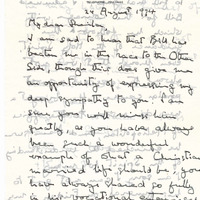 24 August 1994
My dear
I am sad to hear that Bill has
beaten me in the race to the Other
Side, though this does give me
an opportunity of expressing my
deep sympathy to you. I am
sure you will miss him
greatly, as you have always
been such a wonderful
example of what a Christian
married life should be; you
have always shared so fully
in his vocational